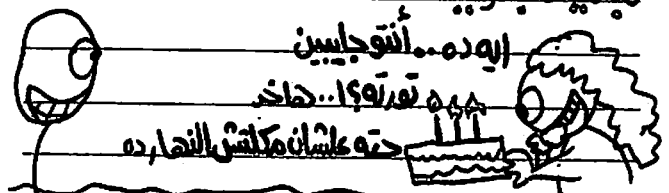 ايه ده...أنتو جايبين
تورته؟!..هاخد
حته علشان مكلتش النهارده